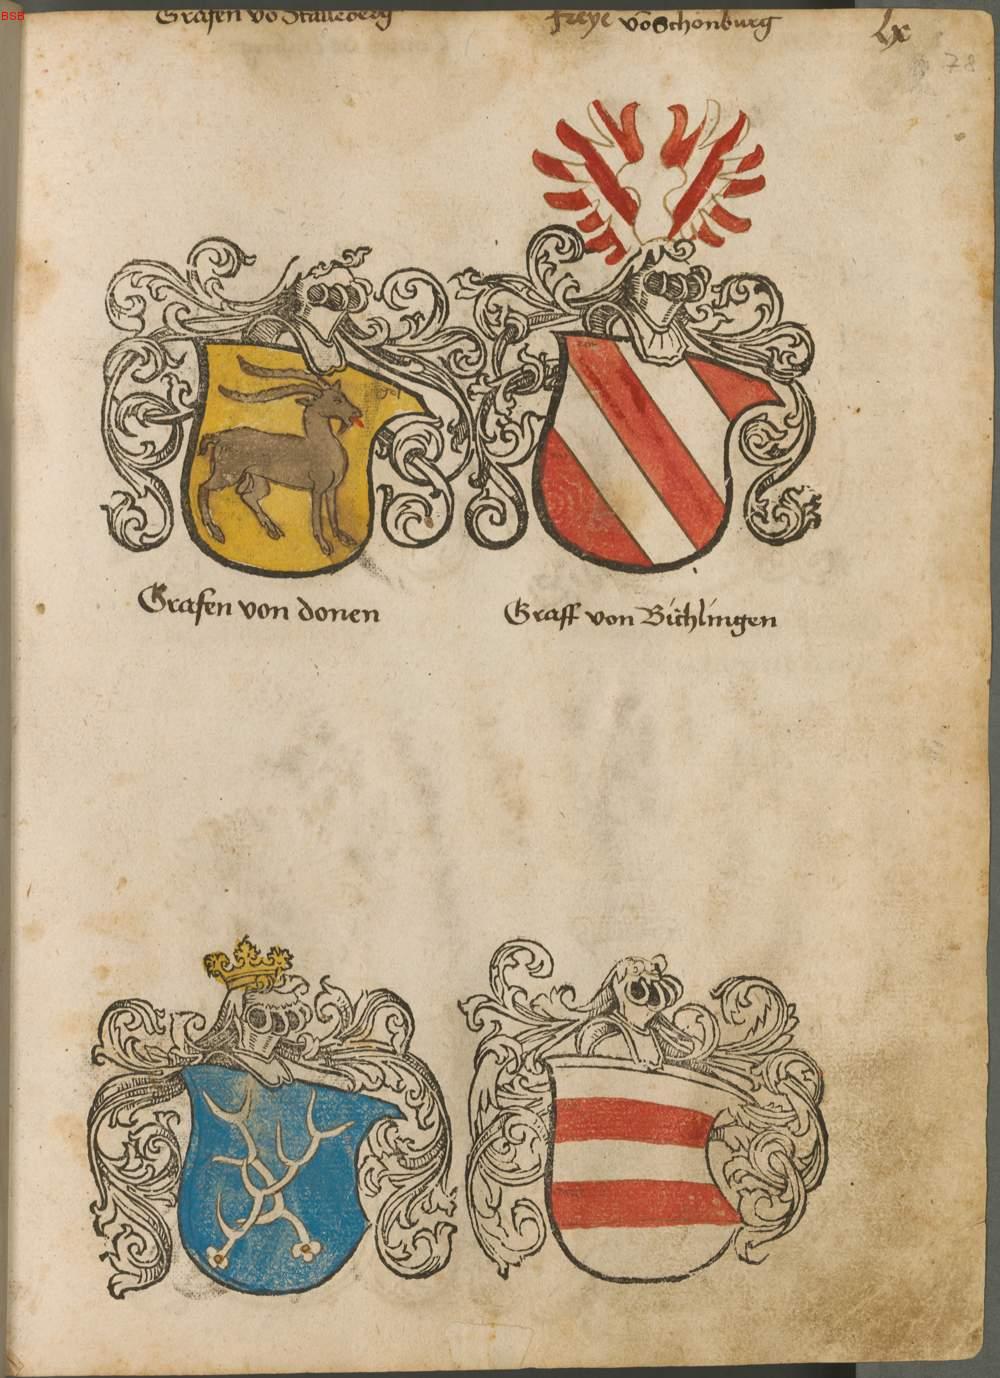 BSB
Grafen vo
Freye võ Schonburg
lx
78
Grafen von donen
Graff von Bichlingen